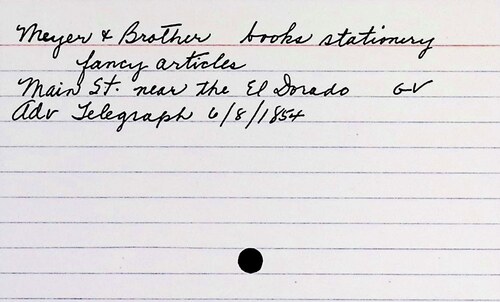 Meyer & Brother books stationery
fancy articles
Main St. near the El Dorado GV
Adv Telegraph 6/8/1854